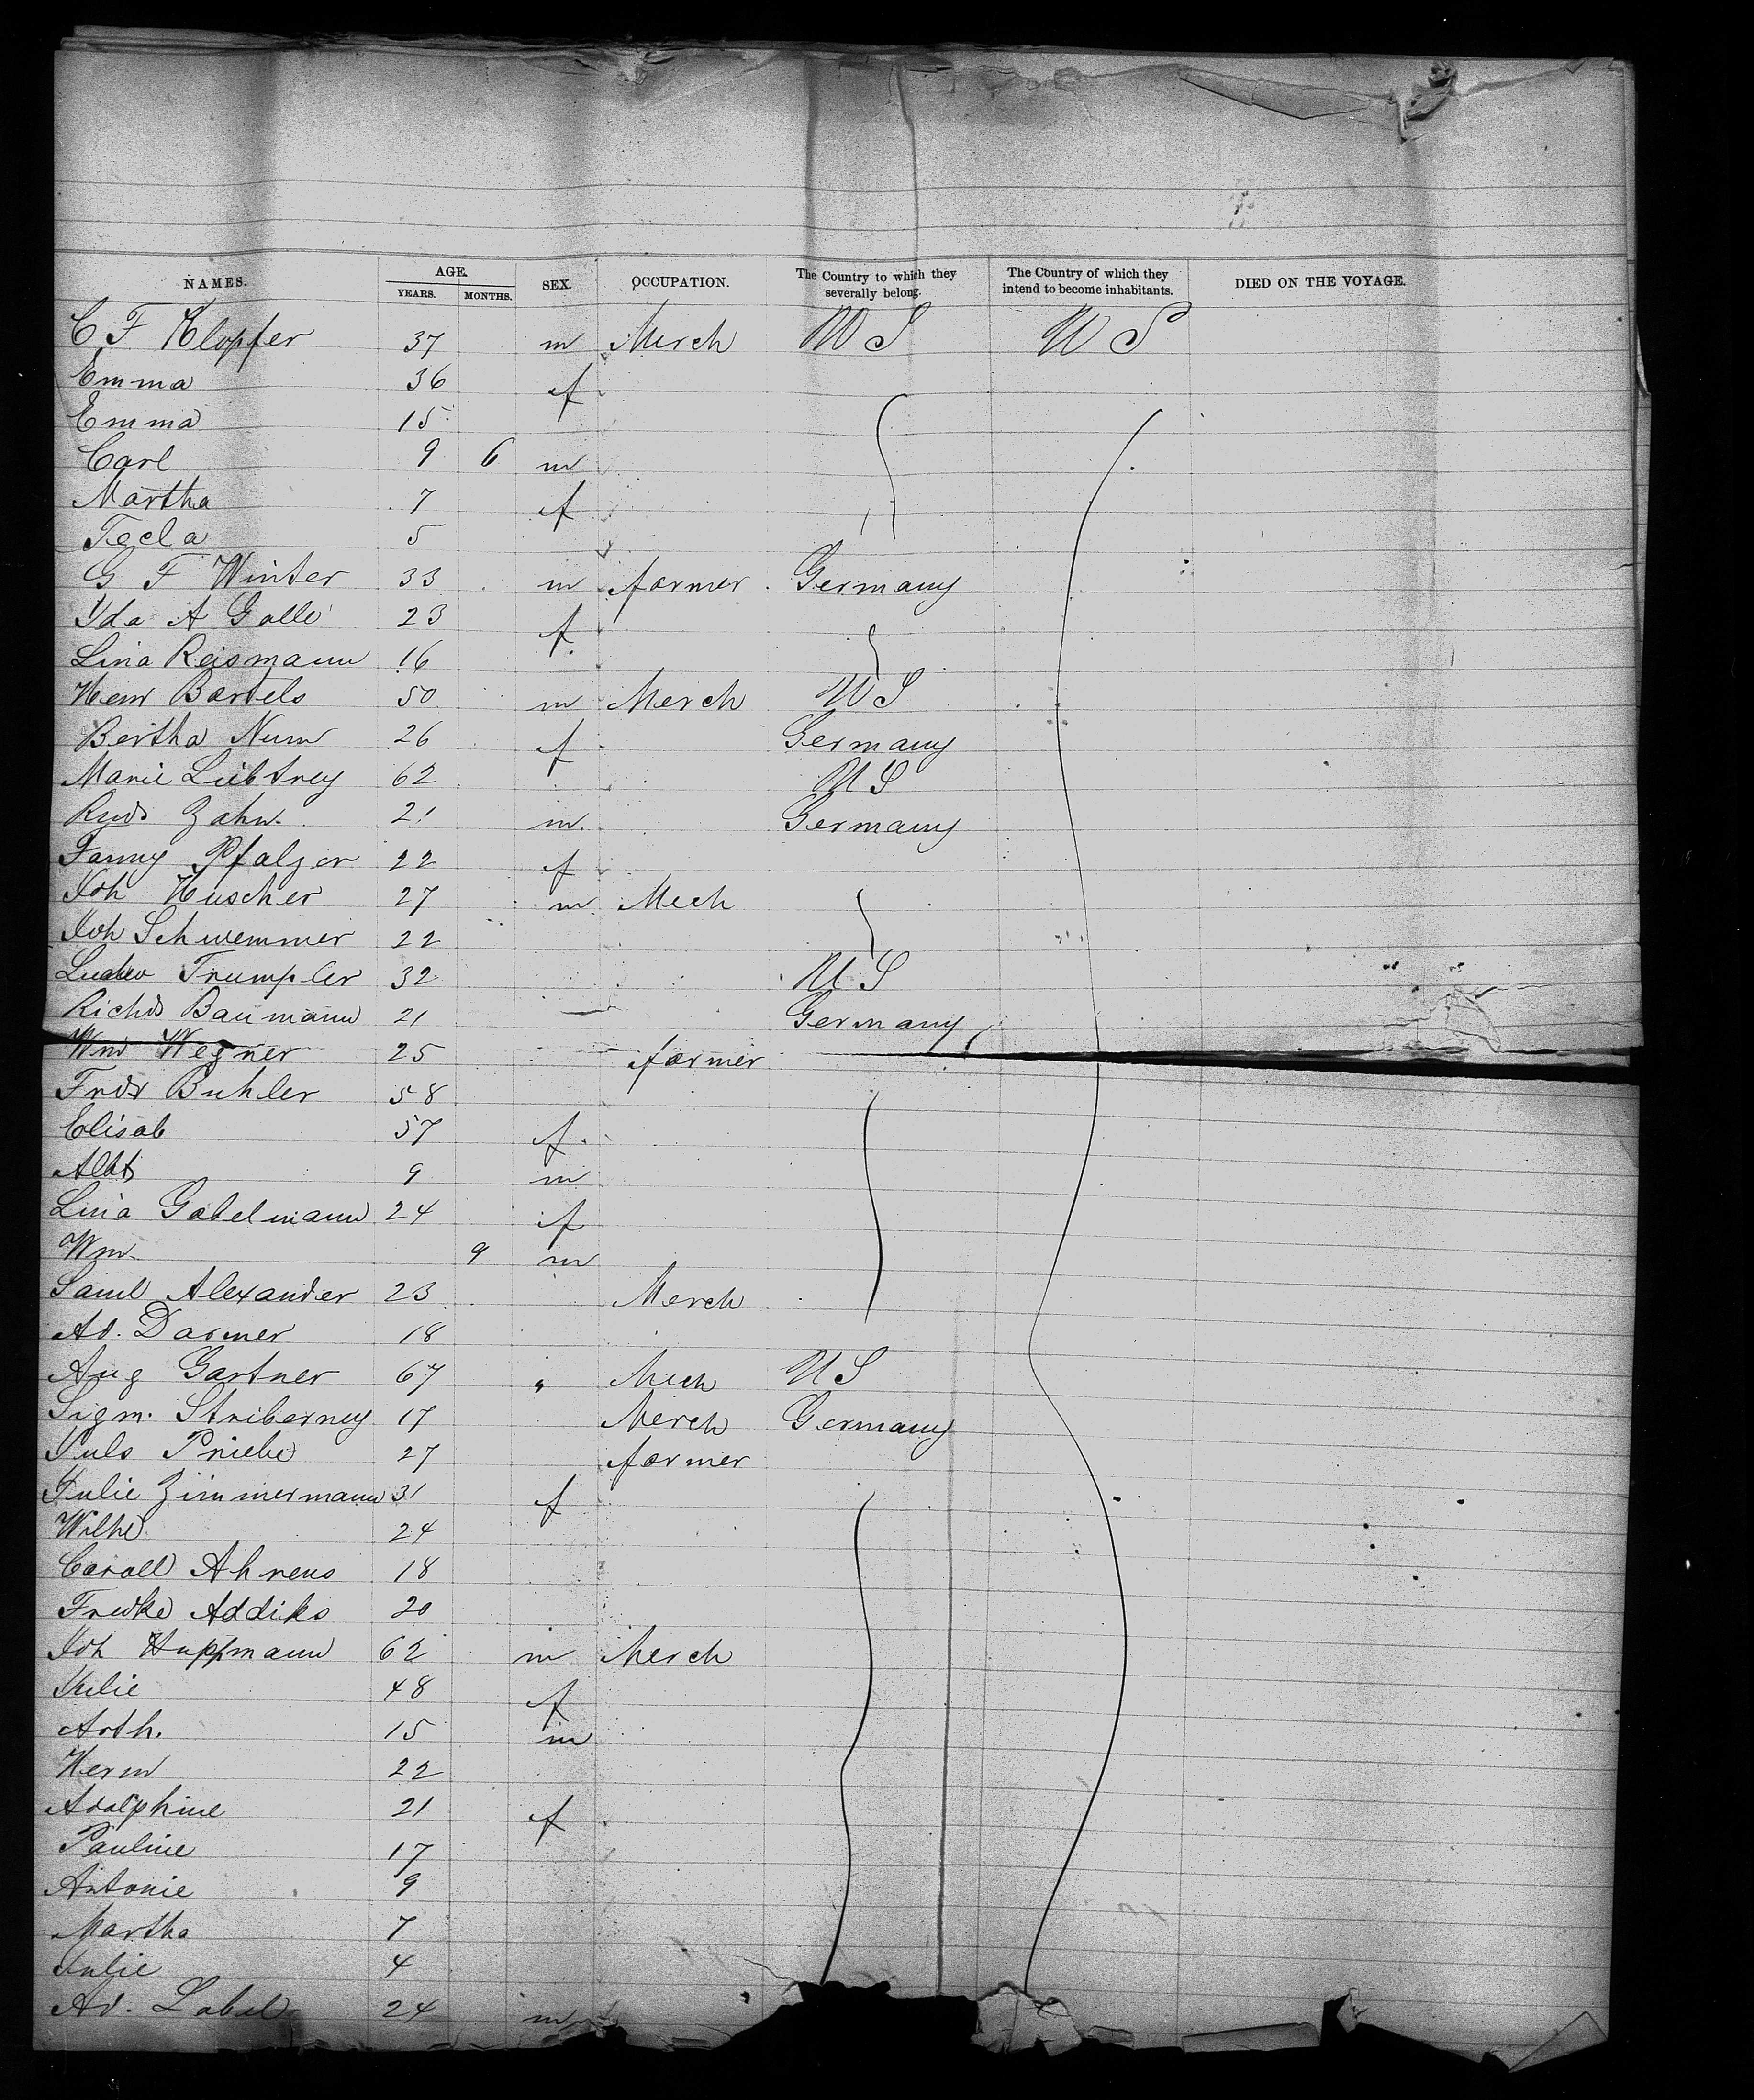 NAMES. AGE. YEARS. MONTHS. SEX. OCCUPATION. The Country to which they severally belong. The Country of which they intend to become inhabitants. DIED ON THE VOYAGE.
C F Klopfer 37 m Merch U S U S
Emma 36 f
Emma 15
Carl 9 6 m
Martha 7 f
Tecla 5
G F Winter 33 m farmer Germany
Ida A Galle 23 f
Lina Reismann 16
Henr Bartels 50 m Merch U S
Bertha 26 f Germany
Marie 62 U S
Rud Zahn 21 m. Germany
Fanny Pfalzer 22 f
Joh Huscher 27 m Mech
Joh Schwemmer 22
Trumpler 32 U S
Richd Baumann 21 Germany
Wm Wegner 25 farmer
Fredr Buhler 58
Elisab 57 f
Albt 9 m
Lina Gabelmann 24 f
Wm 9 m
Saml Alexander 23 Merch
Ad. Darmer 18
Aug Gartner 67 " Mech U S
Sigm. Striberney 17 Merch Germany
Juls Priebe 27 farmer
Julie Zimmermann 31 f
Wilhe 24
Caroll Ahrens 18
Fredke Addiks 20
Joh Huppmann 62 m Merch
Julie 48 f
Arth. 15 m
Herm 22
Adolphine 21 f
Pauline 17
Antonie 9
Martha 7
Julie 4
Ad. Label 24 m